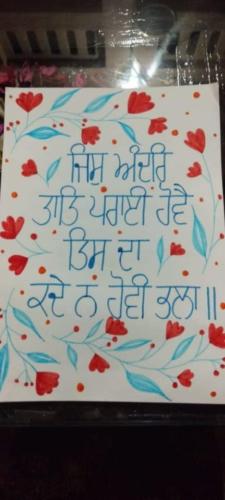 ਜਿਸੁ ਅੰਦਰਿ
ਤਾਤਿ ਪਰਾਈ ਹੋਵੈ
ਤਿਸ ਦਾ
ਕਦੇ ਨ ਹੋਵੀ ਭਲਾ॥